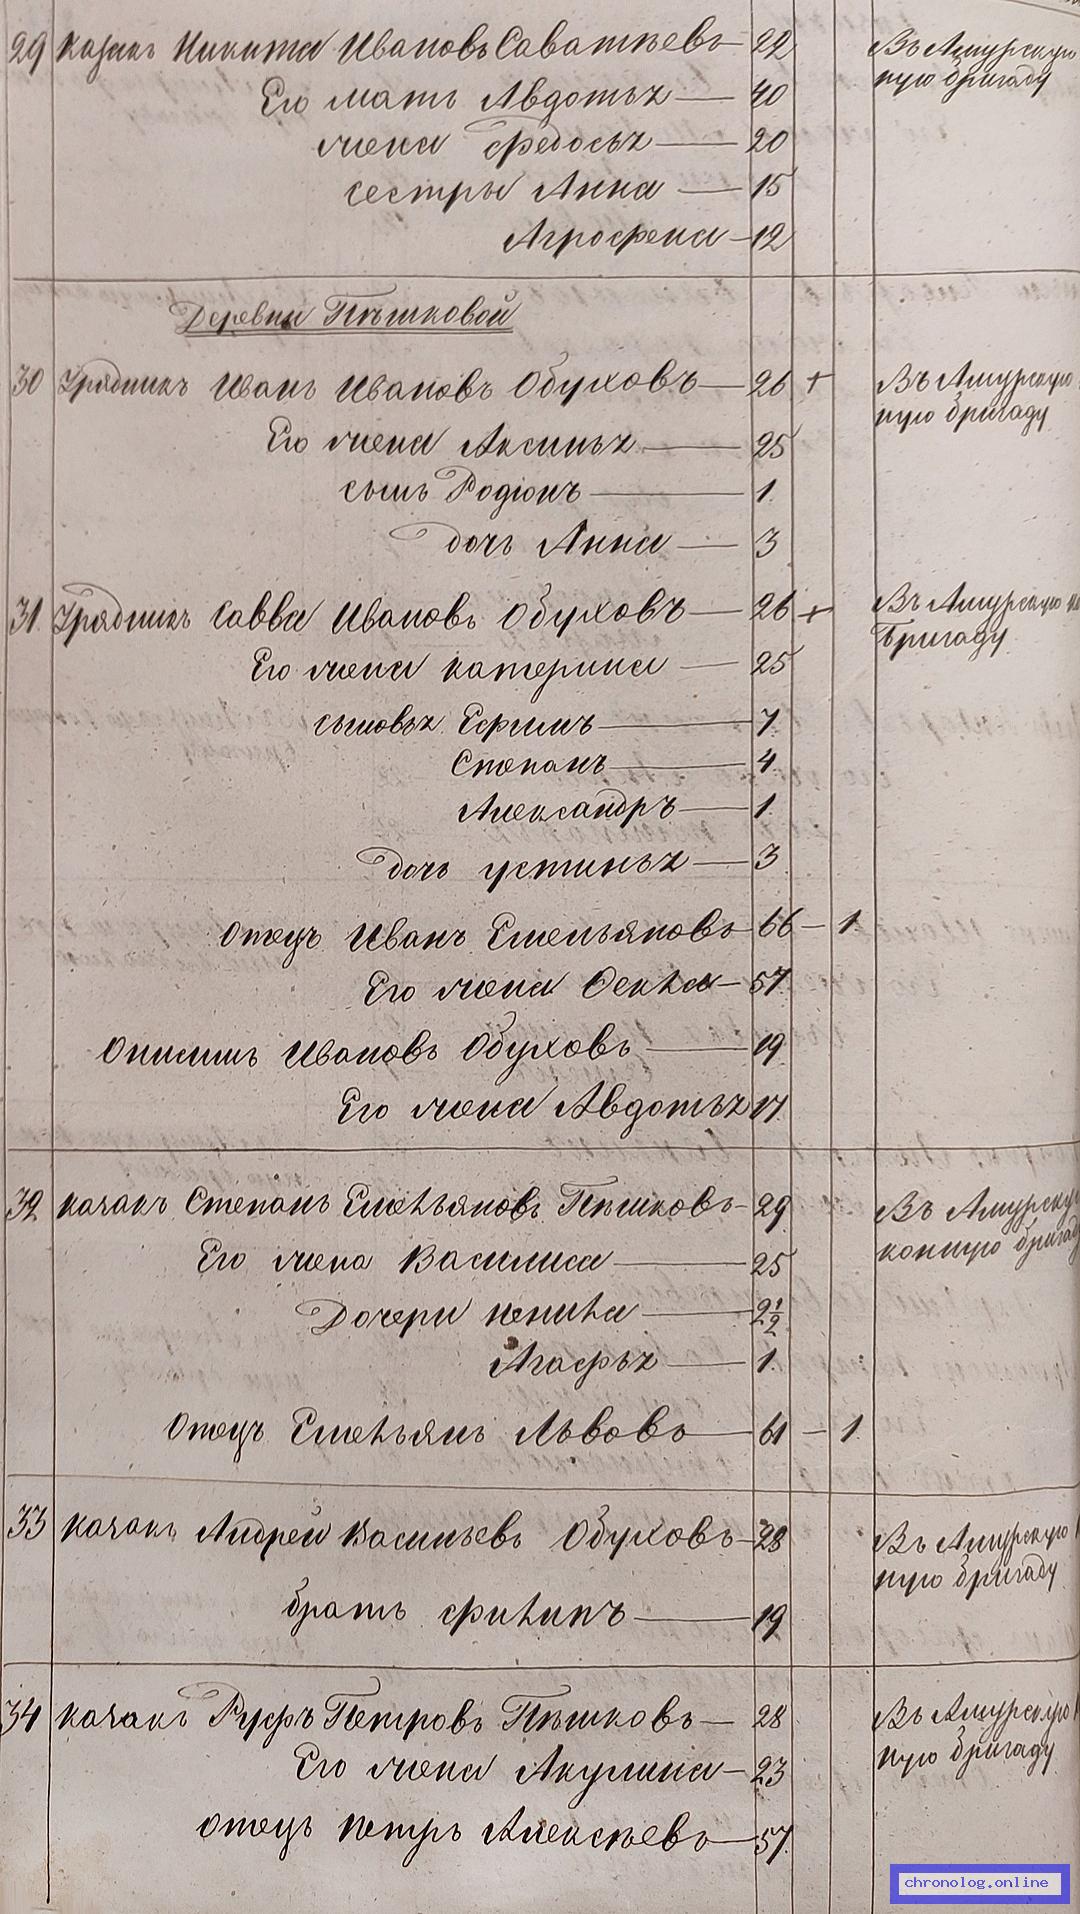 29 казакъ Никита Ивановъ Саватѣевъ — 22 Въ Амурскую
ную бригаду
Его мать Авдотья — 40
жена Ѳедосья — 20
сестры Анна — 15
Агрофена — 12
Деревни Пѣшковой
30 Урядникъ Иванъ Ивановъ Обуховъ — 26 + Въ Амурскую
ную бригаду
Его жена Аксинья — 25
сынъ Родіонъ — 1
дочь Анна — 3
31 Урядникъ Савва Ивановъ Обуховъ — 26 + Въ Амурскую ко
бригаду
Его жена Катерина — 25
сыновья Ефимъ — 7
Степанъ — 4
Александръ — 1
дочь Устинья — 3
Отецъ Иванъ Емельяновъ — 66 — 1
Его жена Фекла — 57
Онисимъ Ивановъ Обуховъ — 19
Его жена Авдотья 17
32 казакъ Степанъ Емельяновъ Пѣшковъ — 29 Въ Амурскую
конную бригаду
Его жена Василиса — 25
Дочери — 2½
Агафья — 1
Отецъ Емельянъ Львовъ — 61 — 1
33 казакъ Андрей Васильевъ Обуховъ — 28 Въ Амурскую
ную бригаду
братъ Филипъ — 19
34 казакъ Руфъ Петровъ Пѣшковъ — 28 Въ Амурскую
ную бригаду
Его жена Акулина — 23
отецъ Петръ Алексѣевъ — 57
chronolog.online